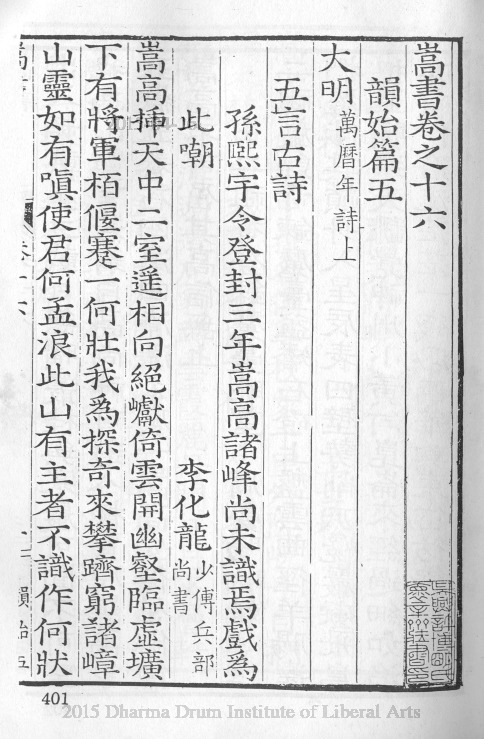 嵩書卷之十六
韻始篇五
大明萬曆年詩上
五言古詩
孫熙宇令登封三年嵩高諸峰尚未識焉戲爲
此嘲
李化龍少傅兵部尚書
嵩高揷天中二室遥相向絕巘倚雲開幽壑臨虛壙
下有將軍栢偃蹇一何壯我爲探奇來攀躋窮諸嶂
山靈如有嗔使君何孟浪此山有主者不識作何狀
韻始五
401
2015 Dharma Drum Institute of Liberal Arts